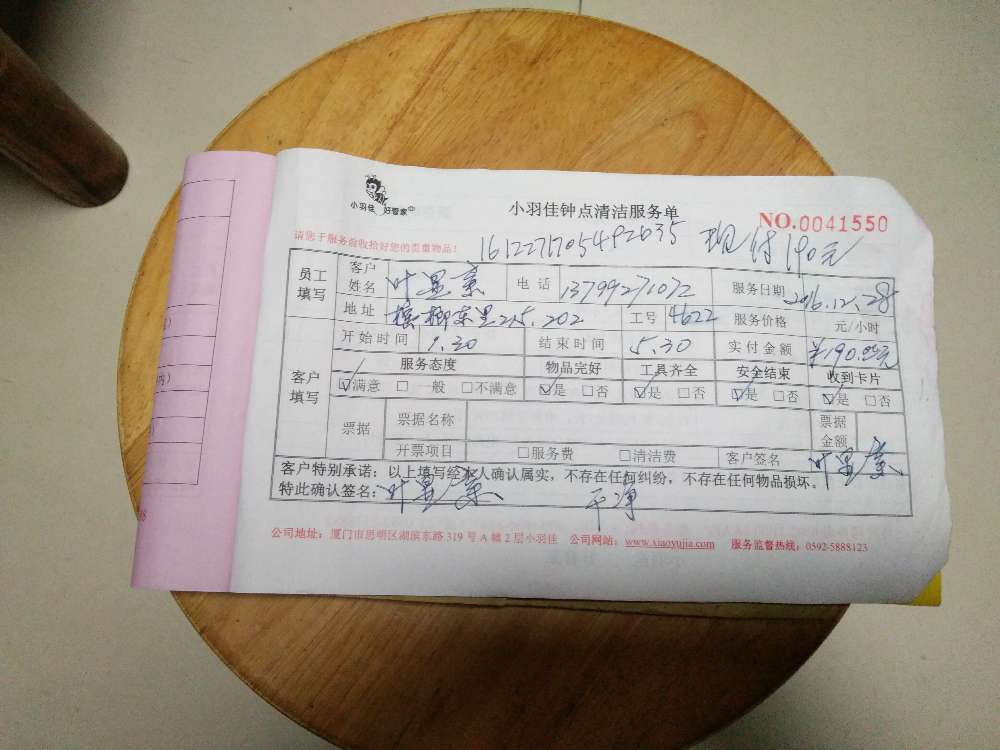 小羽佳 好管家
小羽佳钟点清洁服务单
NO.0041550
请您于服务验收捡好您的贵重物品!
现付190元
员工填写 客户姓名 电话 服务日期 2016.12.28
地址 2-5.202 工号 4622 服务价格 元/小时
客户填写 开始时间 1.30 结束时间 5.30 实付金额 ¥190.00元
服务态度 物品完好 工具齐全 安全结束 收到卡片
☑满意 □一般 □不满意 ☑是 □否 ☑是 □否 ☑是 □否 ☑是 □否
票据 票据名称 票据金额
开票项目 □服务费 □清洁费 客户签名
客户特别承诺：以上填写经本人确认属实，不存在任何纠纷，不存在任何物品损坏。
特此确认签名: 干净
公司地址：厦门市思明区湖滨东路 319 号 A 幢 2 层小羽佳 公司网站：www.xiaoyujia.com 服务监督热线：0592-5888123